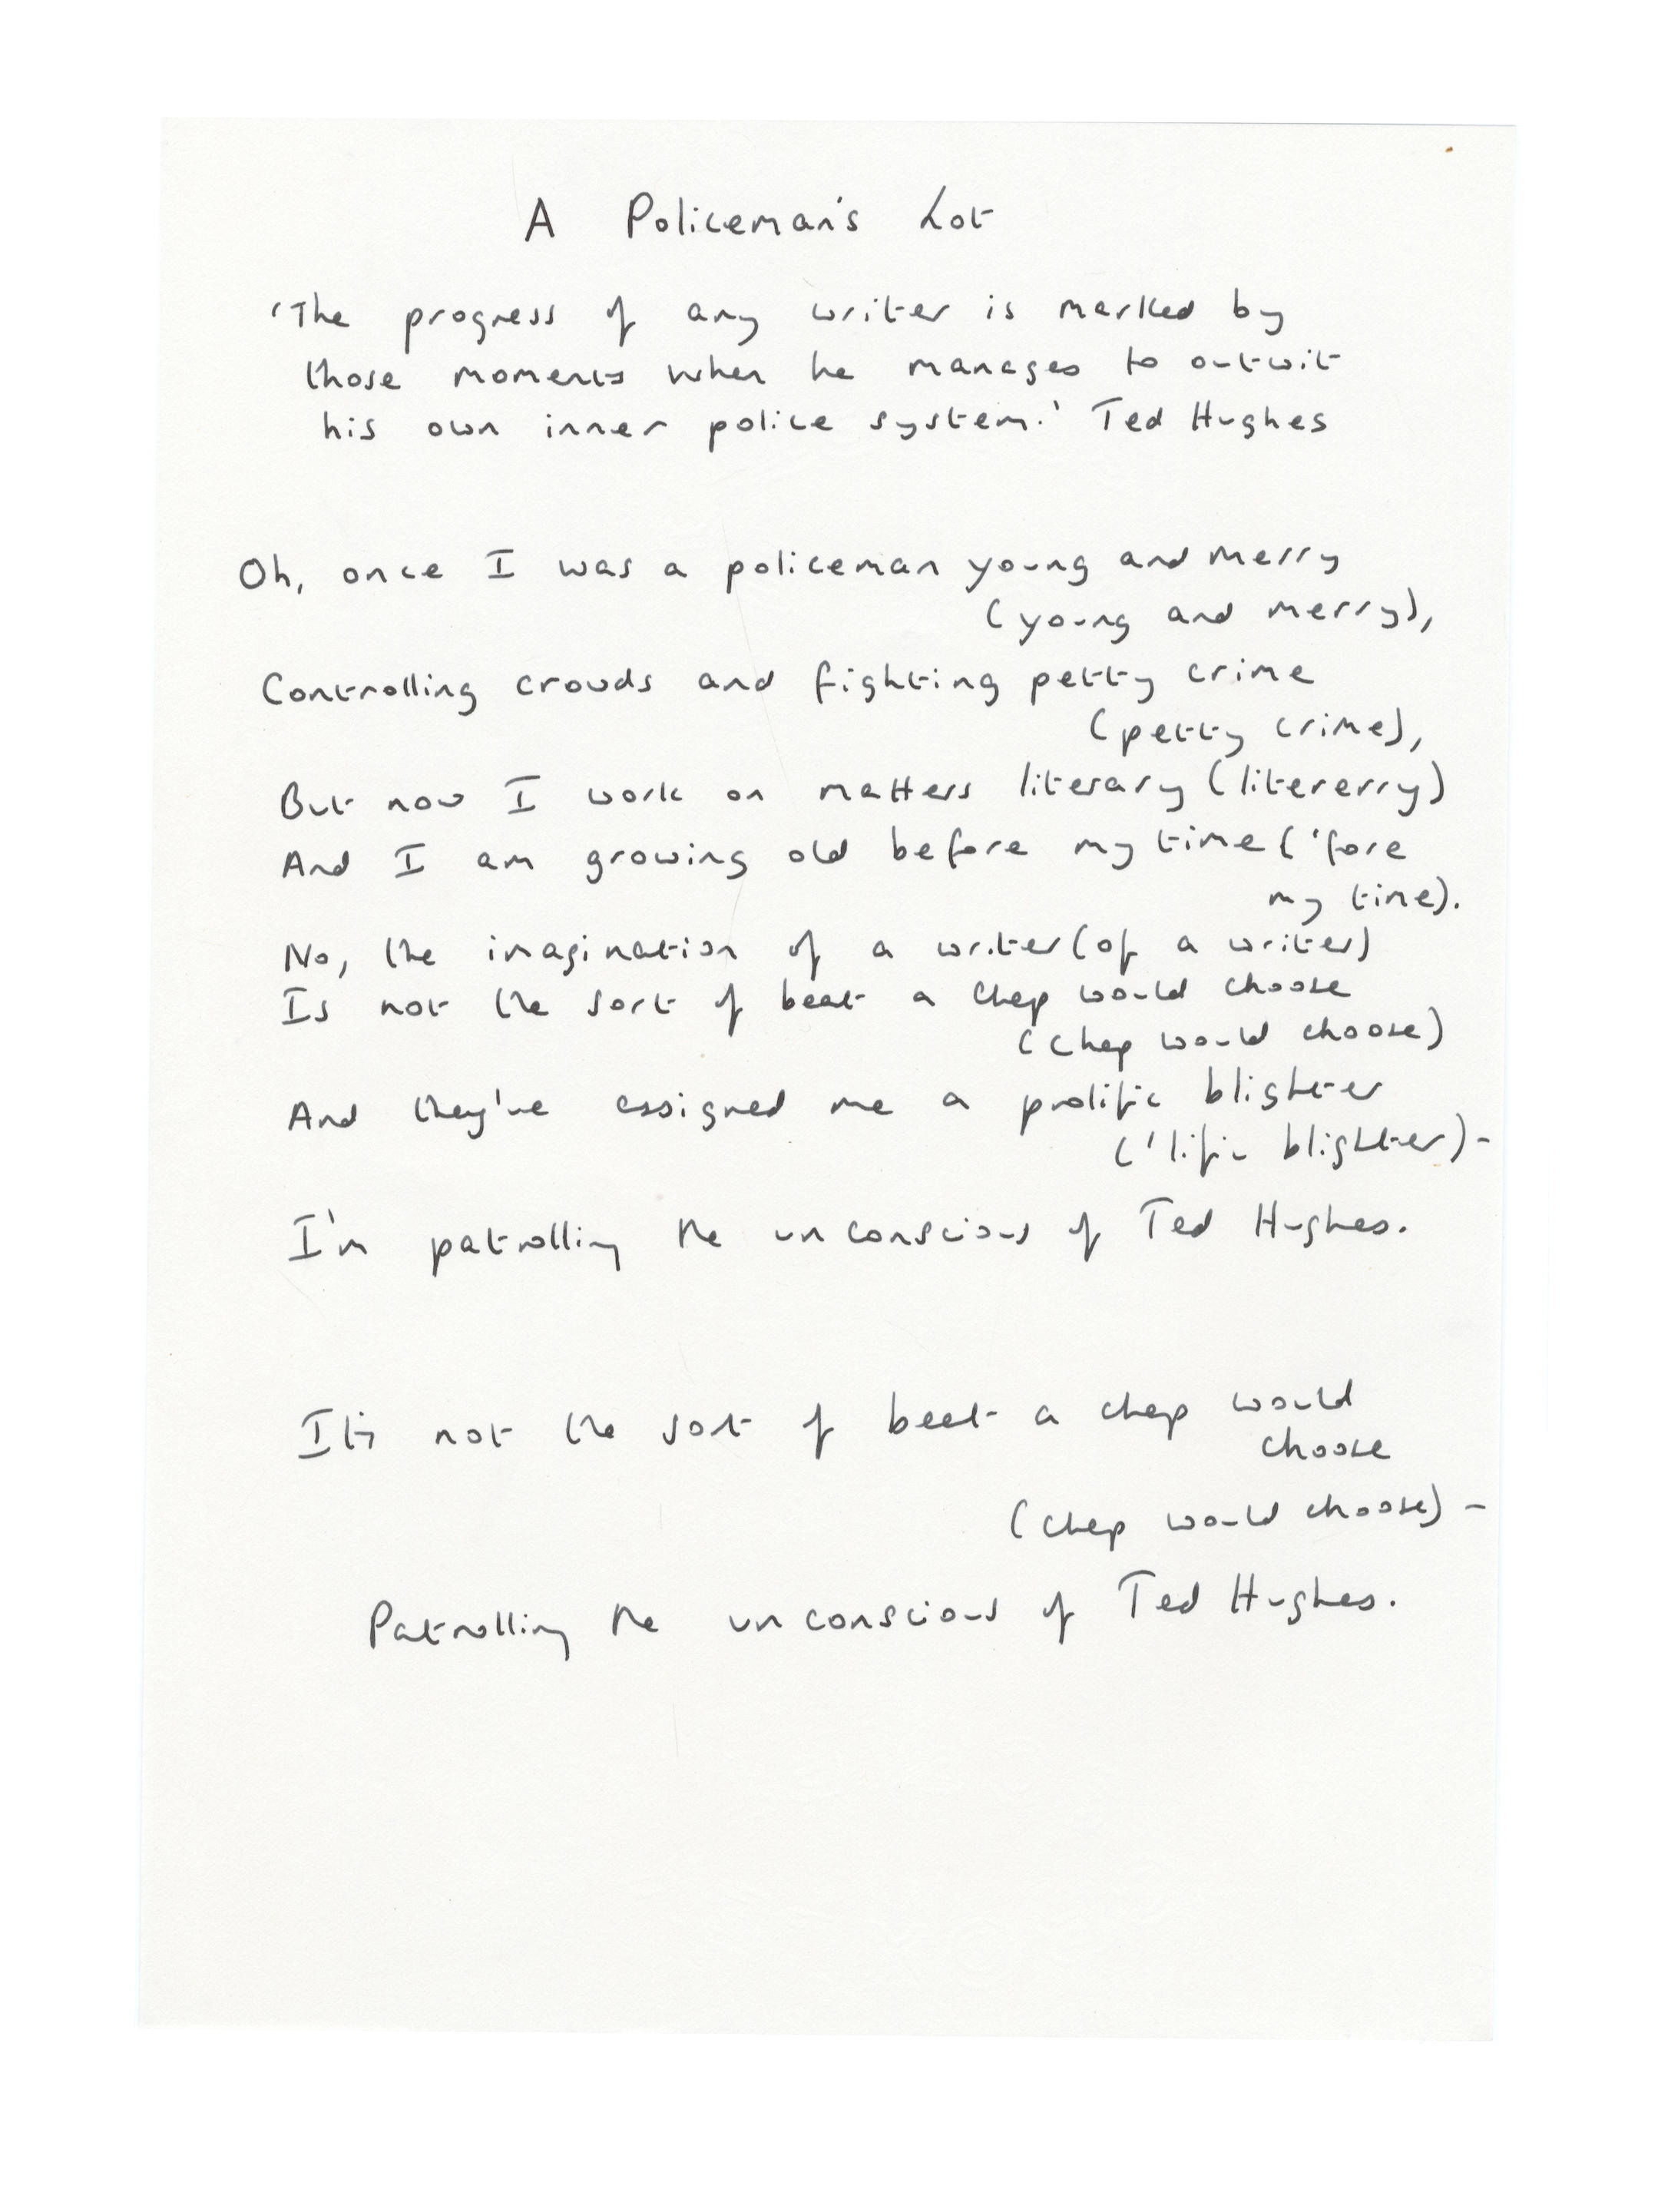 A Policeman's Lot
'The progress of any writer is marked by
those moments when he manages to outwit
his own inner police system.' Ted Hughes
Oh, once I was a policeman young and merry
(young and merry),
Controlling crowds and fighting petty crime
(petty crime),
But now I work on matters literary (litererry)
And I am growing old before my time ('fore
my time).
No, the imagination of a writer (of a writer)
Is not the sort of beat a chap would choose
(chap would choose)
And they've assigned me a prolific blighter
('lific blighter) -
I'm patrolling the unconscious of Ted Hughes.
It's not the sort of beat a chap would
choose
(chap would choose) -
Patrolling the unconscious of Ted Hughes.